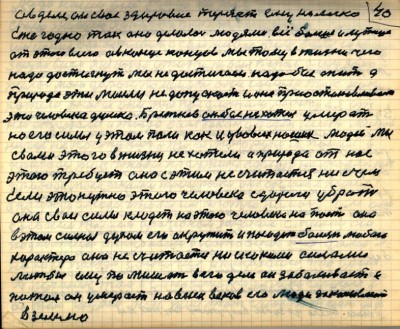 40
он свое здоровие теряет ему нелегко
ежегодно так оно делалось людями всё больше и
от этого всего а в конце концов мы тому в жизни чего
надо достигнут мы не достигаем надо бы жить а
природа эти мысли не допускает и она приостанавливает
это человека душно. Братков ослабе умирать
но его силы у этом пали как и у всех наших людей мы
свами этого в жизни не хотели а природа от нас
этого требует она с этим не считается ни с чем
если это нужно этого человека с дороги убрать
она свои силы кладет на этого человека на пост она
в этом сильна духом его окружит и пошлет болезнь любого
характера она не считается ни с какими силами
лишь бы ему помешать в его деле он заболевает и
потом он умирает на веки веков его люди закапывают
в землю